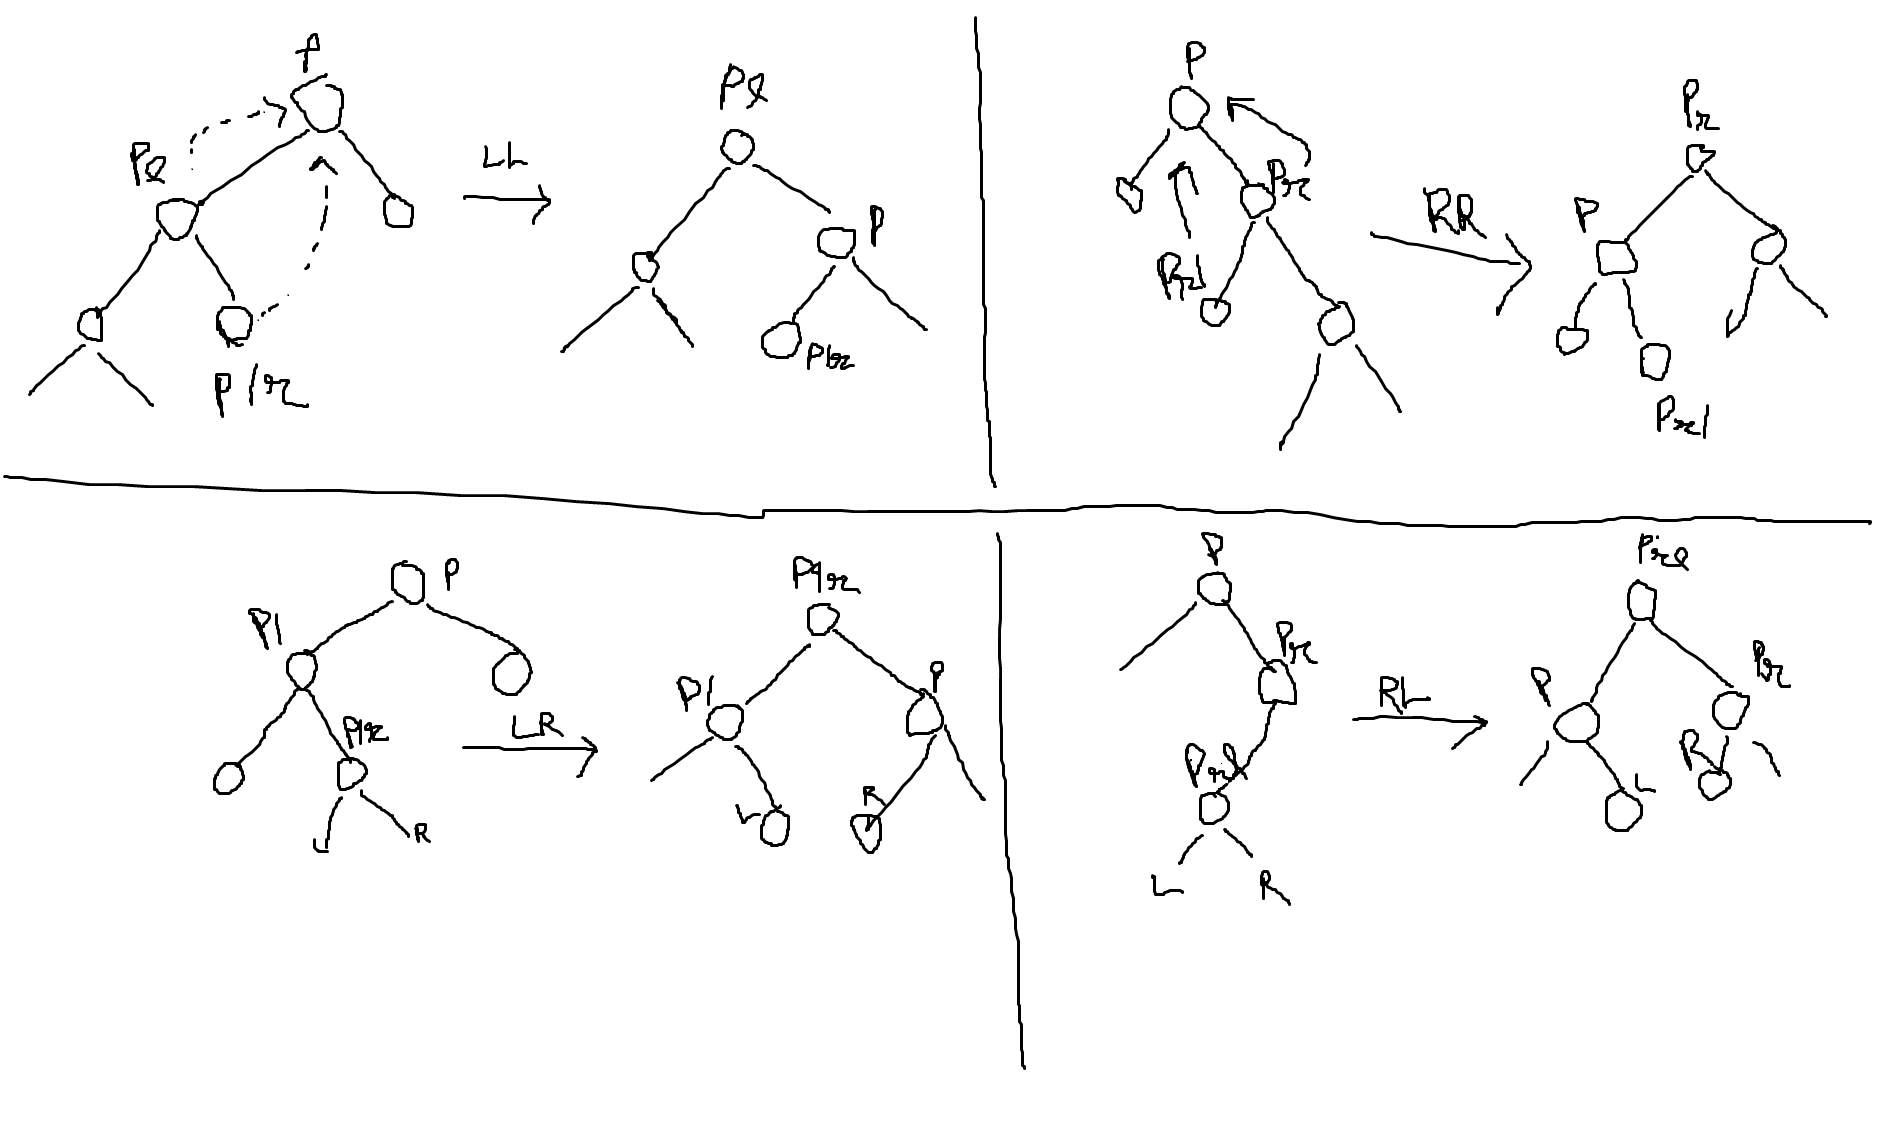 P
Pl
Plr
LL
Pl
P
Plr
P
Pr
Prl
RR
Pr
P
Prl
P
Pl
Plr
L
R
LR
Plr
Pl
P
L
R
P
Pr
Prl
L
R
RL
Prl
P
Pr
L
R